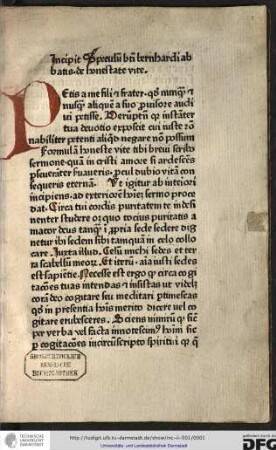 Incipit Speculū btī bernhardi ab
batis de honestate vite.
PEtis a me fili et frater. qd nunqȝ et
nusqȝ aliquē a suo pulsore audi
ui petisse. Verūptn̄ qȝ instāter
tua deuotio exposcit cui iuste rō
nabiliter petenti aliqd negare nō possum
Formulā honeste vite tibi breui scribo
sermone quā in cristi amore si ardescēs
pseuerāter seruaueris. pcul dubio vitā con
sequeris eternā. Vt igitur ab interiori
incipiens. ad exteriorē vsqȝ sermo proce
dat. Circa tui cordis puritatem te indesi
nenter studere opȝ quo tocius puritatis a
mator deus tanqȝ i ppria sede sedere dig
netur ibi sedem sibi tamquā in celo collo
care. Iuxta illud. Celū michi sedes et ter
ra scabellū meoȝ. Et iterū. aīa iusti sedes
est sapiētie. Necesse est ergo qȝ circa cogi
tacōes tuas intendas et insistas ut videlȝ
cora deo cogitare seu meditari ptimescas
qd in presentia hoīs merito dicere vel co
gitare erubesceres. Sciens nimirū qȝ sic
per verba vel facta innotescim9 hoīni sic
per cogitacōes incircūscripto spiritui et qȝ
GROSSHERZOGLICH
HESSISCHE
HOFBIBLIOTHEK
TECHNISCHE
UNIVERSITÄT
DARMSTADT
http://tudigit.ulb.tu-darmstadt.de/show/inc-ii-001/0001
Universitäts- und Landesbibliothek Darmstadt
DFG